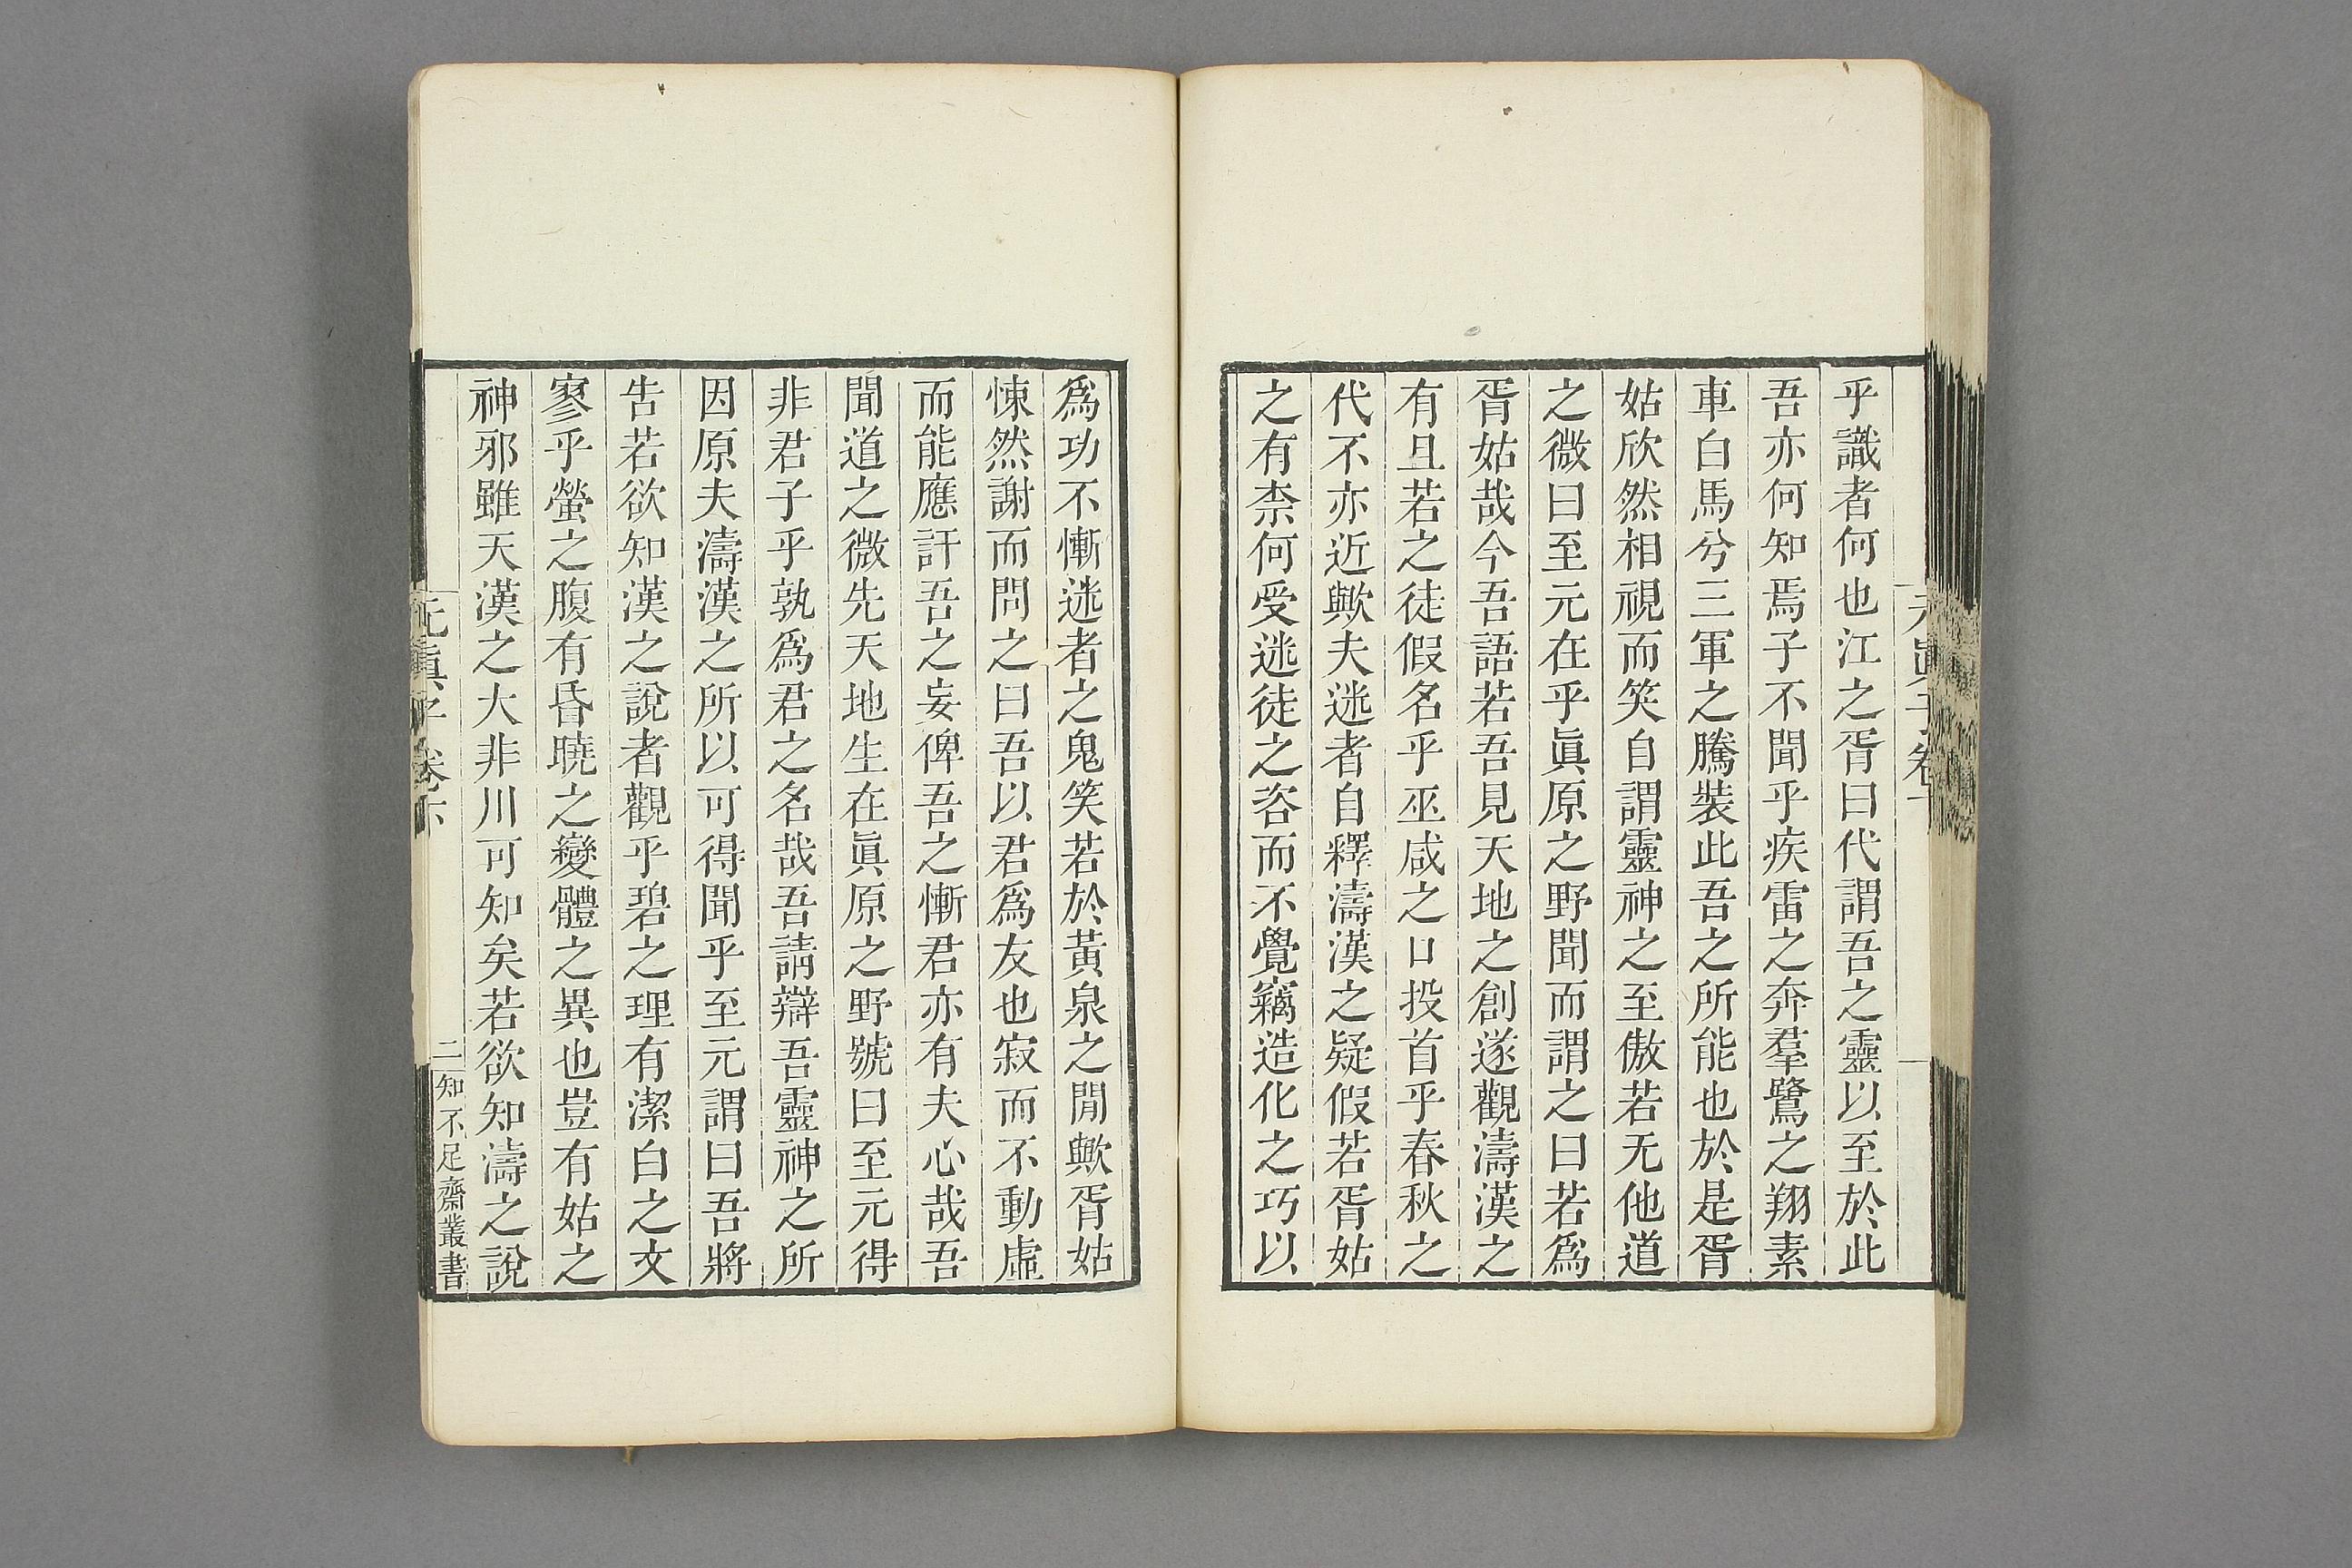 乎識者何也江之胥曰代謂吾之靈以至於此
吾亦何知焉子不聞乎疾雷之奔羣鷺之翔素
車白馬兮三軍之騰裝此吾之所能也於是胥
姑欣然相視而笑自謂靈神之至傲若无他道
之微曰至元在乎眞原之野聞而謂之曰若爲
胥姑哉今吾語若吾見天地之創遂觀濤漢之
有且若之徒假名乎巫咸之口投首乎春秋之
代不亦近歟夫迷者自釋濤漢之疑假若胥姑
之有柰何受迷徒之咨而不覺竊造化之巧以
爲功不慚迷者之鬼笑若於黃泉之閒歟胥姑
悚然謝而問之曰吾以君爲友也寂而不動虛
而能應訐吾之妄俾吾之慚君亦有夫心哉吾
聞道之微先天地生在眞原之野號曰至元得
非君子乎孰爲君之名哉吾請辯吾靈神之所
因原夫濤漢之所以可得聞乎至元謂曰吾將
告若欲知漢之說者觀乎碧之理有潔白之文
寥乎螢之腹有昏曉之變體之異也豈有姑之
神邪雖天漢之大非川可知矣若欲知濤之說
元眞子卷下
二
知不足齋叢書